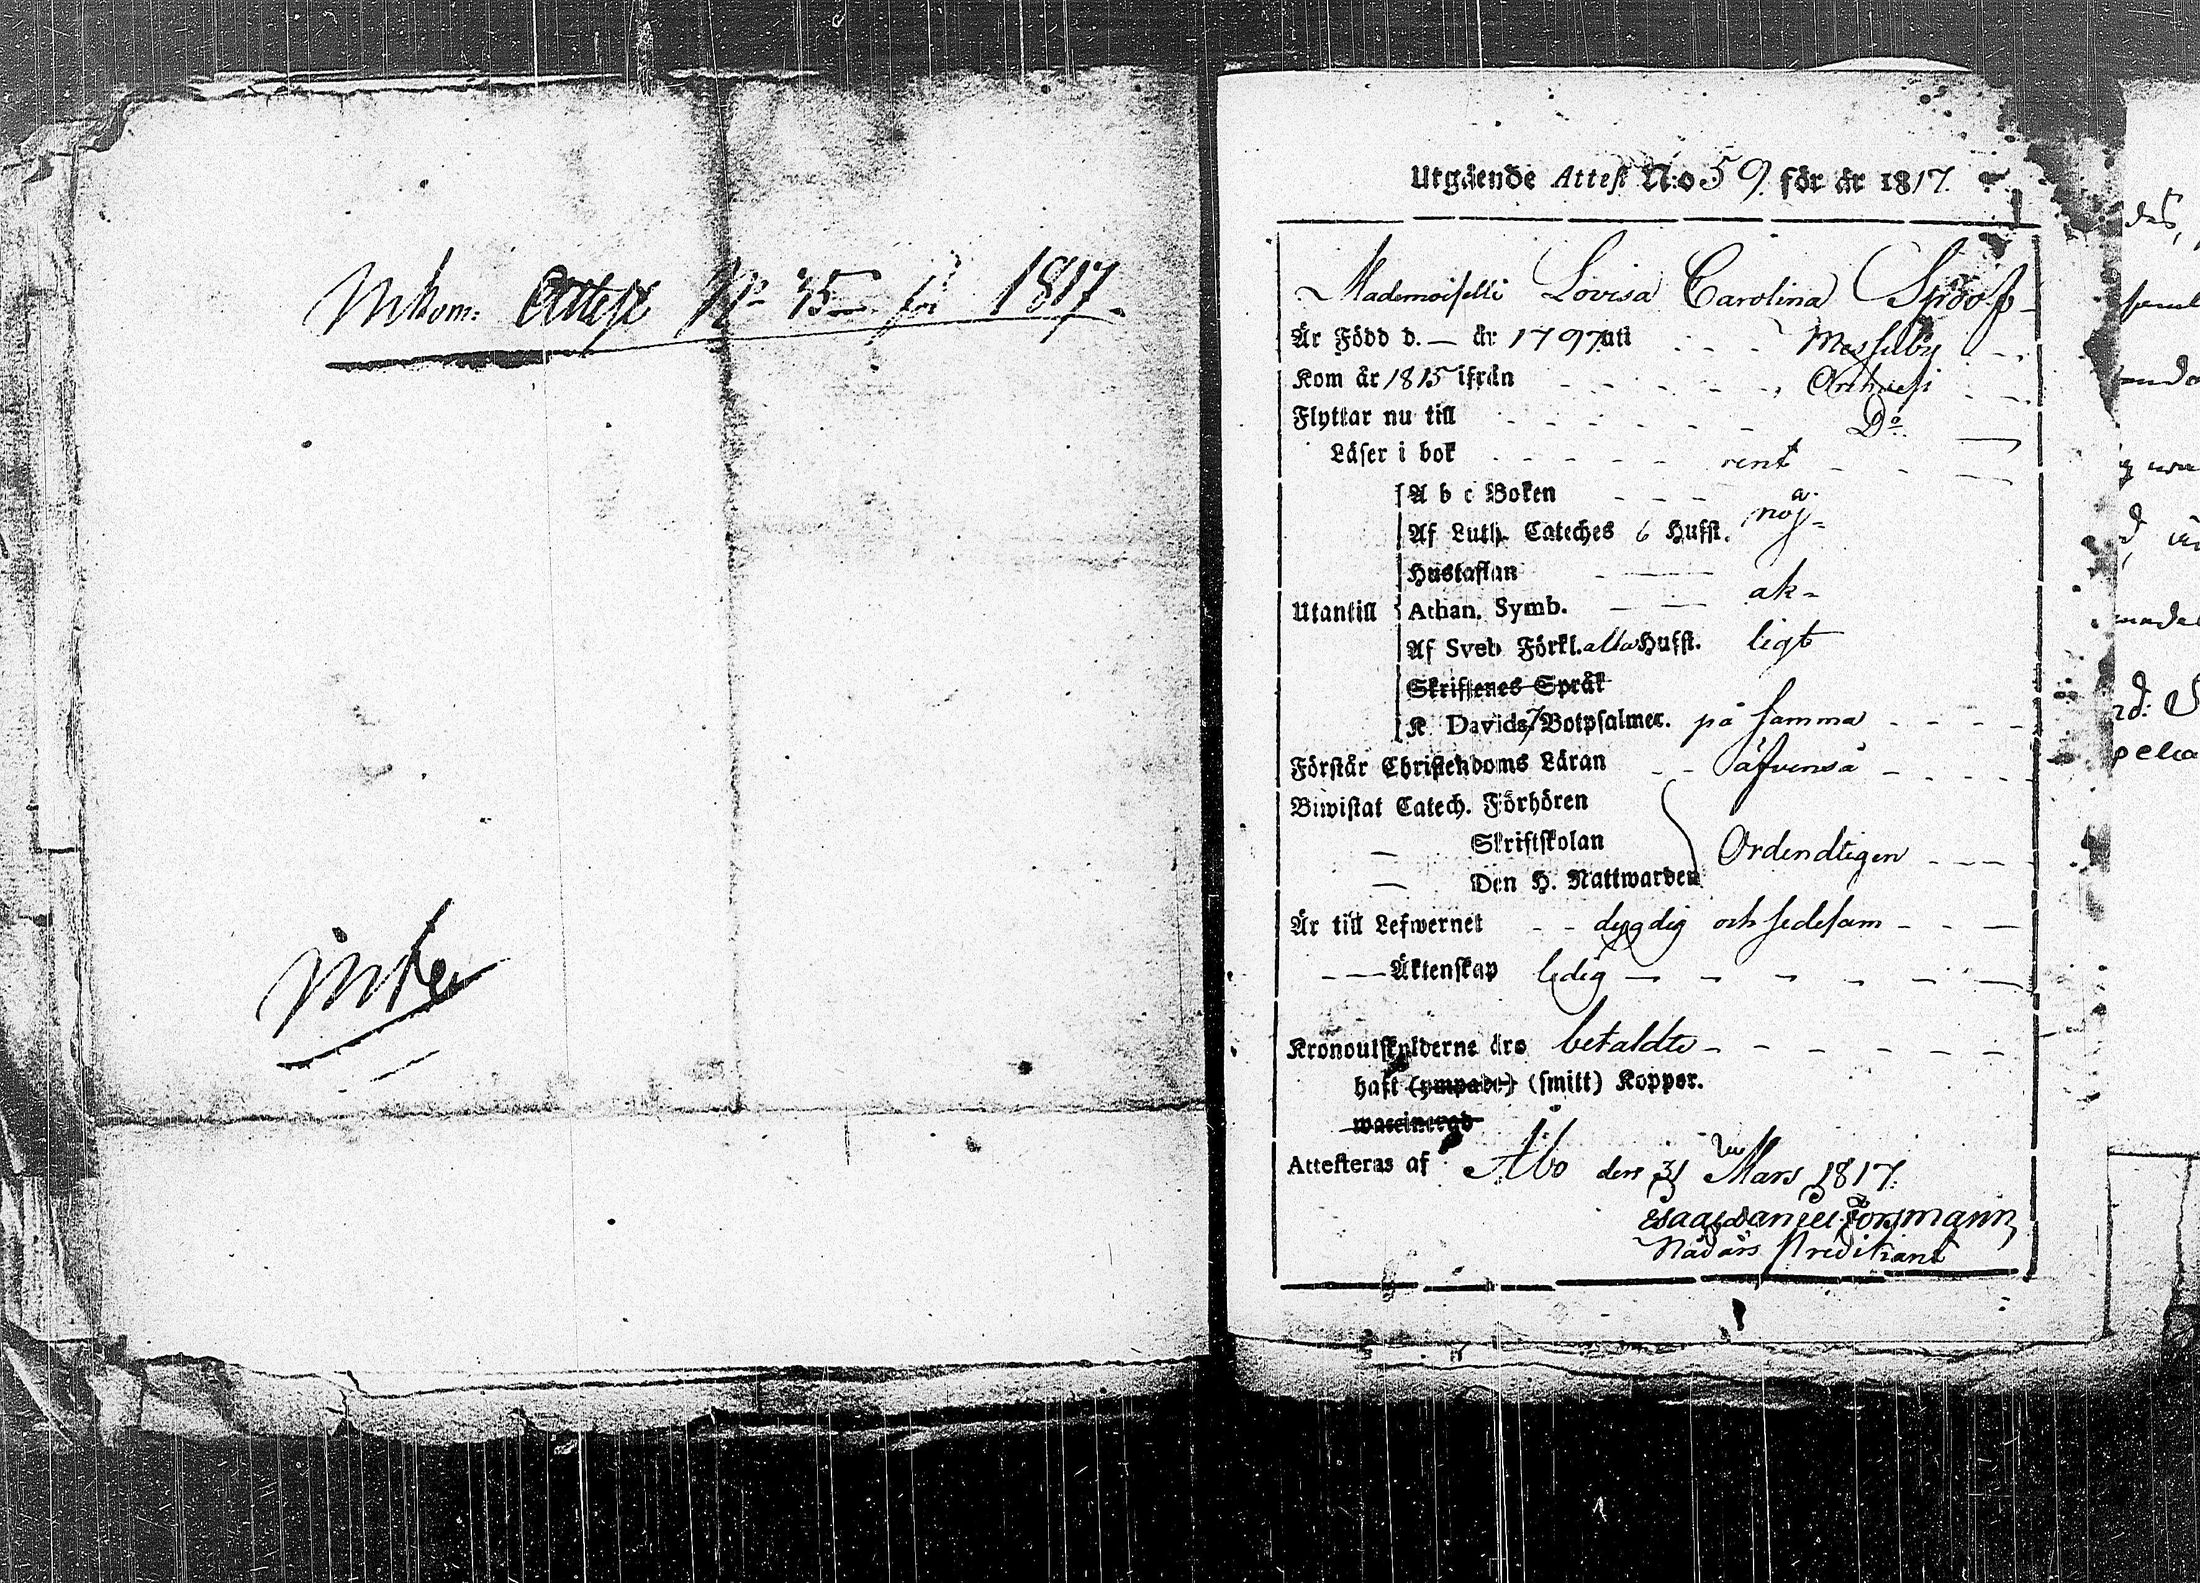 Inkom. Attest No 35 för 1817.
Utgående Attest N:o 59. för år 1817.
Mademoiselle Lovisa Carolina Spoof
Är Född d. — år 1797 uti - - - Messuby - -
Kom år 1815 ifrån - - - - - -
Flyttar nu till - - - - - - Do. —
Läser i bok - - - - - rent - - -
A b c Boken - - - a.
Af Luth. Cateches 6 Hufst. nöj-
Hustaflan — —
Utantill Athan. Symb. — — ak-
Af Sveb. Förkl. alla Hufst. ligt
Skriftenes Språk
K. Davids 7 Botpsalmer. på samma - - - -
Förstår Christendoms Läran - - äfvenså - - - - -
Biwistat Catech. Förhören
— Skriftskolan Ordendtligen - - -
— Den H. Nattwarden
Är till Lefwernet - - dygdig och sedesam - - —
— — Äktenskap ledig — - - - - —
Kronoutskylderne äro betaldte - - - - - -
haft (ympade) (smitt) Koppor.
waccinerad
Attesteras af Åbo den 31 Mars 1817.
Isaac Daniel Forsmann
Nådårs Predikant